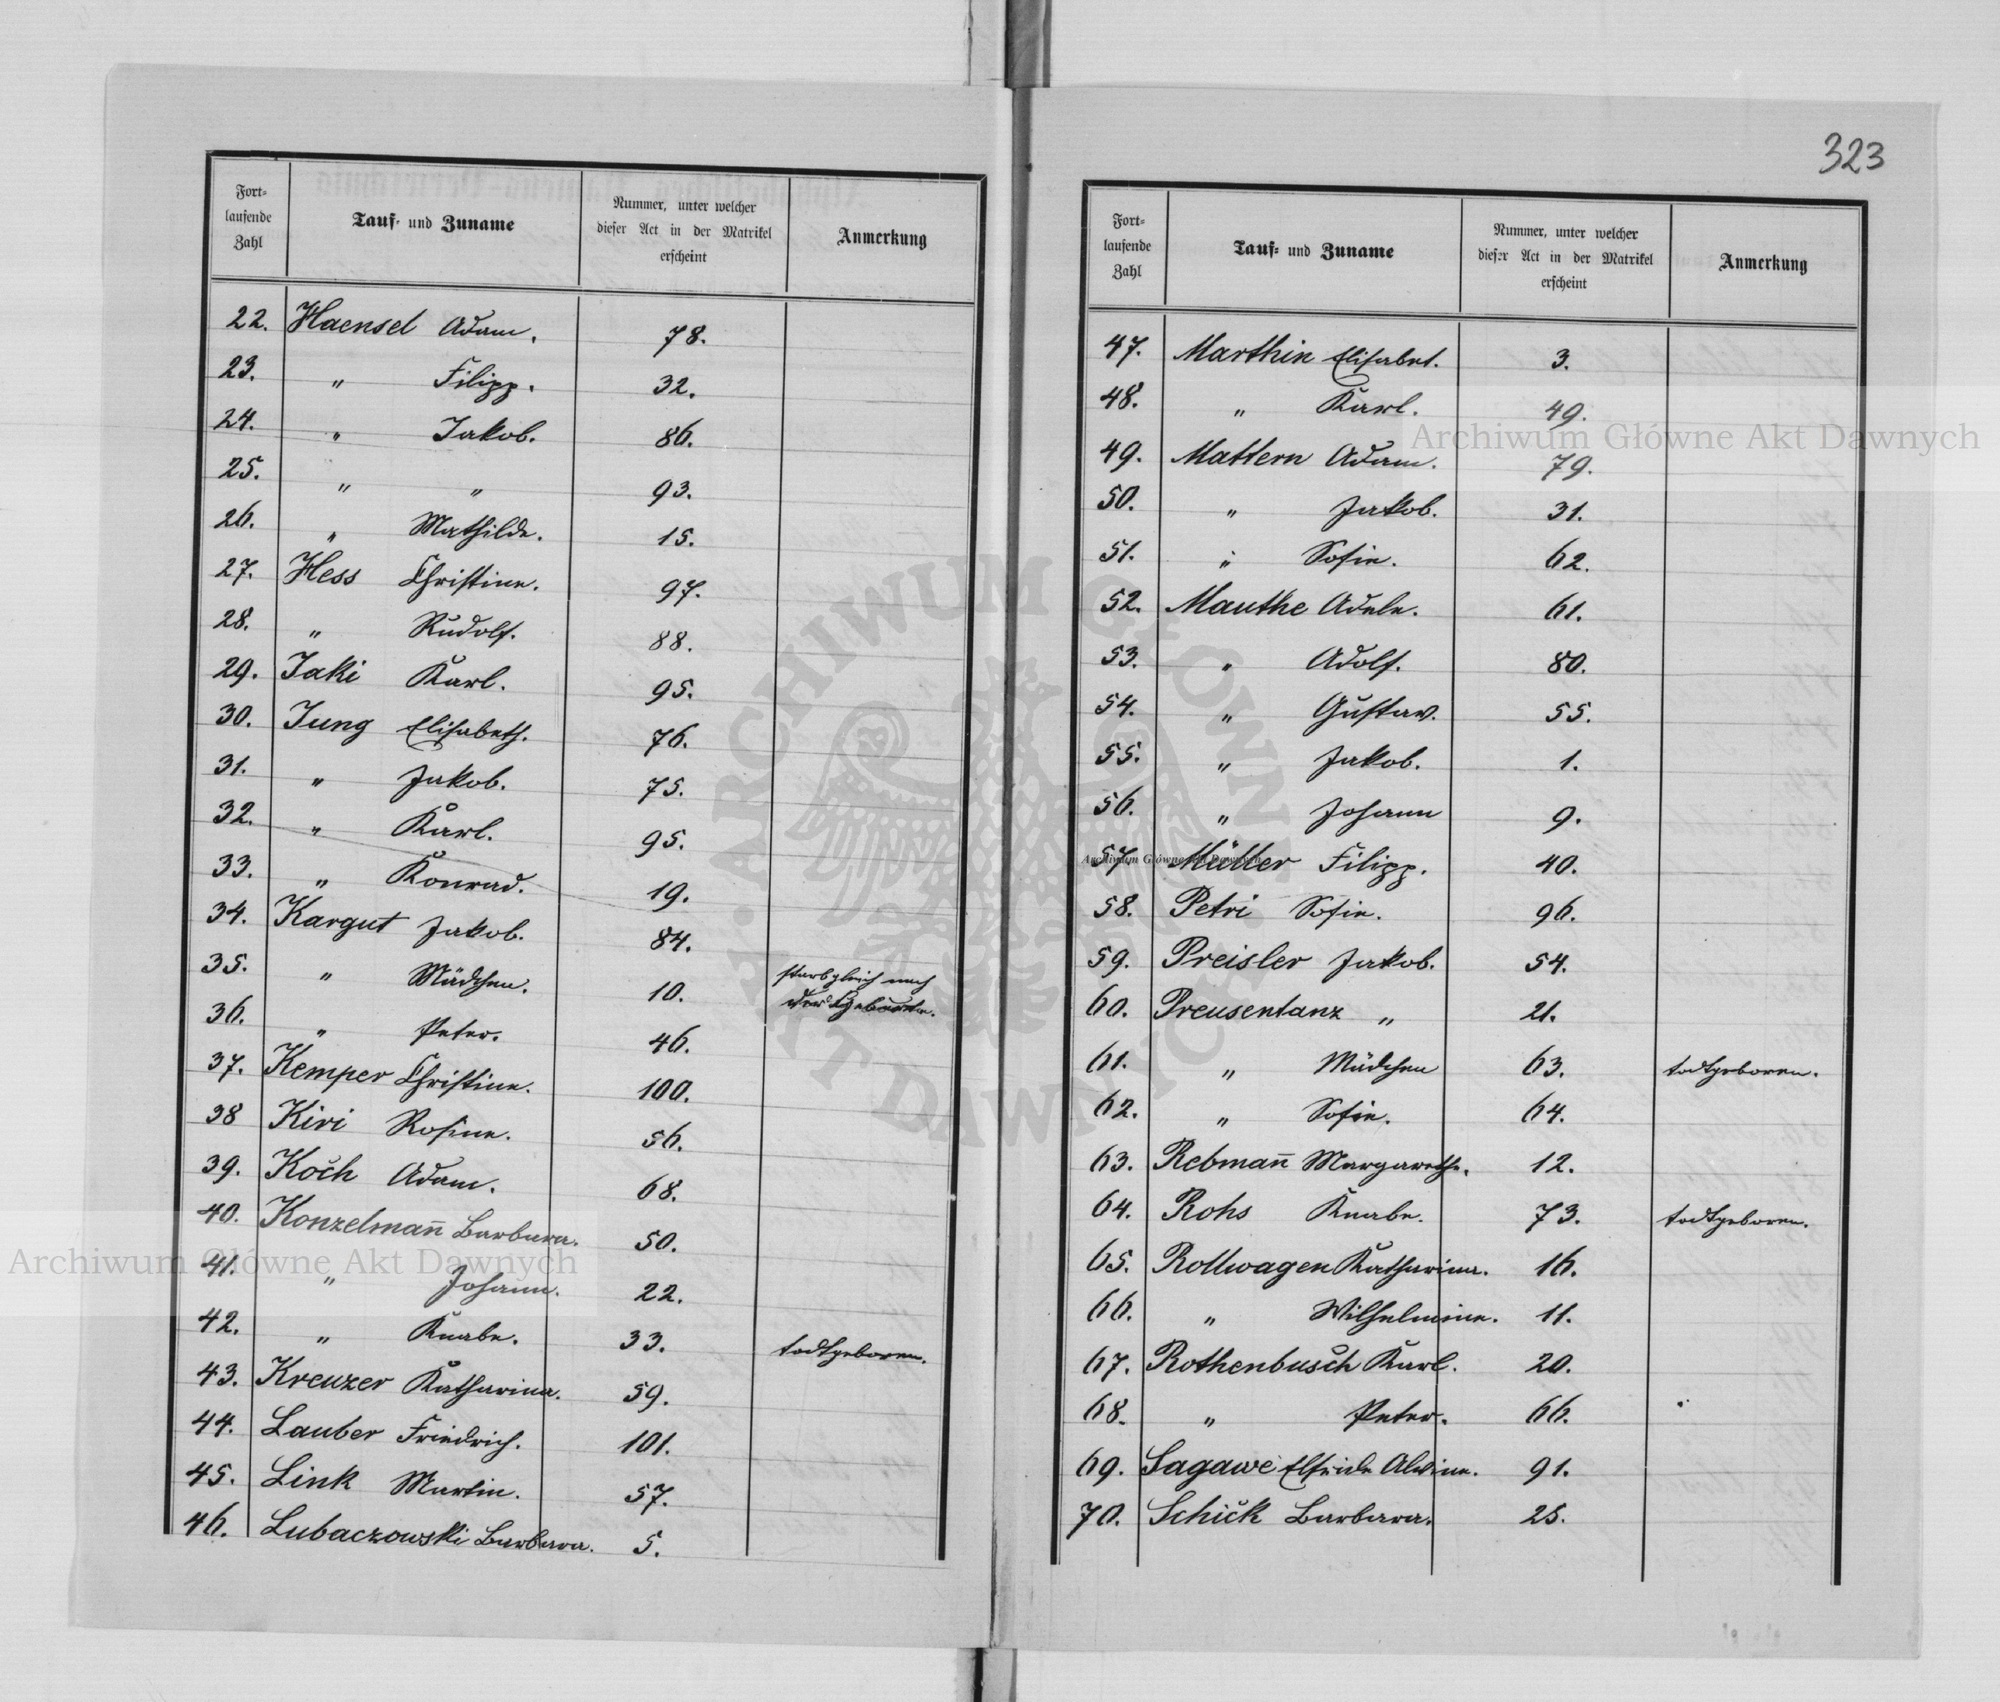 323
Fort-
laufende
Zahl
Tauf- und Zuname
Nummer, unter welcher
dieser Act in der Matrikel
erscheint
Anmerkung
22. Haensel Adam. 78.
23. " Filipp. 32.
24. " Jakob. 86.
25. " " 93.
26. " Mathilde. 15.
27. Hess Christine. 97.
28. " Rudolf. 88.
29. Jaki Karl. 95.
30. Jung Elisabeth. 76.
31. " Jakob. 75.
32. " Karl. 95.
33. " Konrad. 19.
34. Kargut Jakob. 84.
35. " Mädchen. 10. starb gleich nach
der Geburt.
36. " Peter. 46.
37. Kemper Christine. 100.
38 Kiri Rosine. 56.
39. Koch Adam. 68.
40. Konzelmañ Barbara. 50.
41. " Johann. 22.
42. " Knabe. 33. todtgeboren.
43. Kreuzer Katharina. 59.
44. Lauber Friedrich. 101.
45. Link Martin. 57.
46. Lubaczowski Barbara. 5.
Fort-
laufende
Zahl
Tauf- und Zuname
Nummer, unter welcher
dieser Act in der Matrikel
erscheint
Anmerkung
47. Marthin Elisabet. 3.
48. " Karl. 49.
49. Mattern Adam. 79.
50. " Jakob. 31.
51. " Sofie. 62.
52. Mauthe Adele. 61.
53. " Adolf. 80.
54. " Gustav. 55.
55. " Jakob. 1.
56. " Johann 9.
57 Müller Filipp. 40.
58. Petri Sofie. 96.
59. Preisler Jakob. 54.
60. Preusentanz " 21.
61. " Mädchen 63. todtgeboren.
62. " Sofie. 64.
63. Rebmañ Margarethe. 12.
64. Rohs Knabe. 73. todtgeboren.
65. Rollwagen Katharina. 16.
66. " Wilhelmine. 11.
67. Rothenbusch Karl. 20.
68. " Peter. 66.
69. Sagawe Elfride Alvine. 91.
70. Schick Barbara. 25.
Archiwum Główne Akt Dawnych
Archiwum Główne Akt Dawnych
Archiwum Główne Akt Dawnych
ARCHIWUM GŁÓWNE AKT DAWNYCH